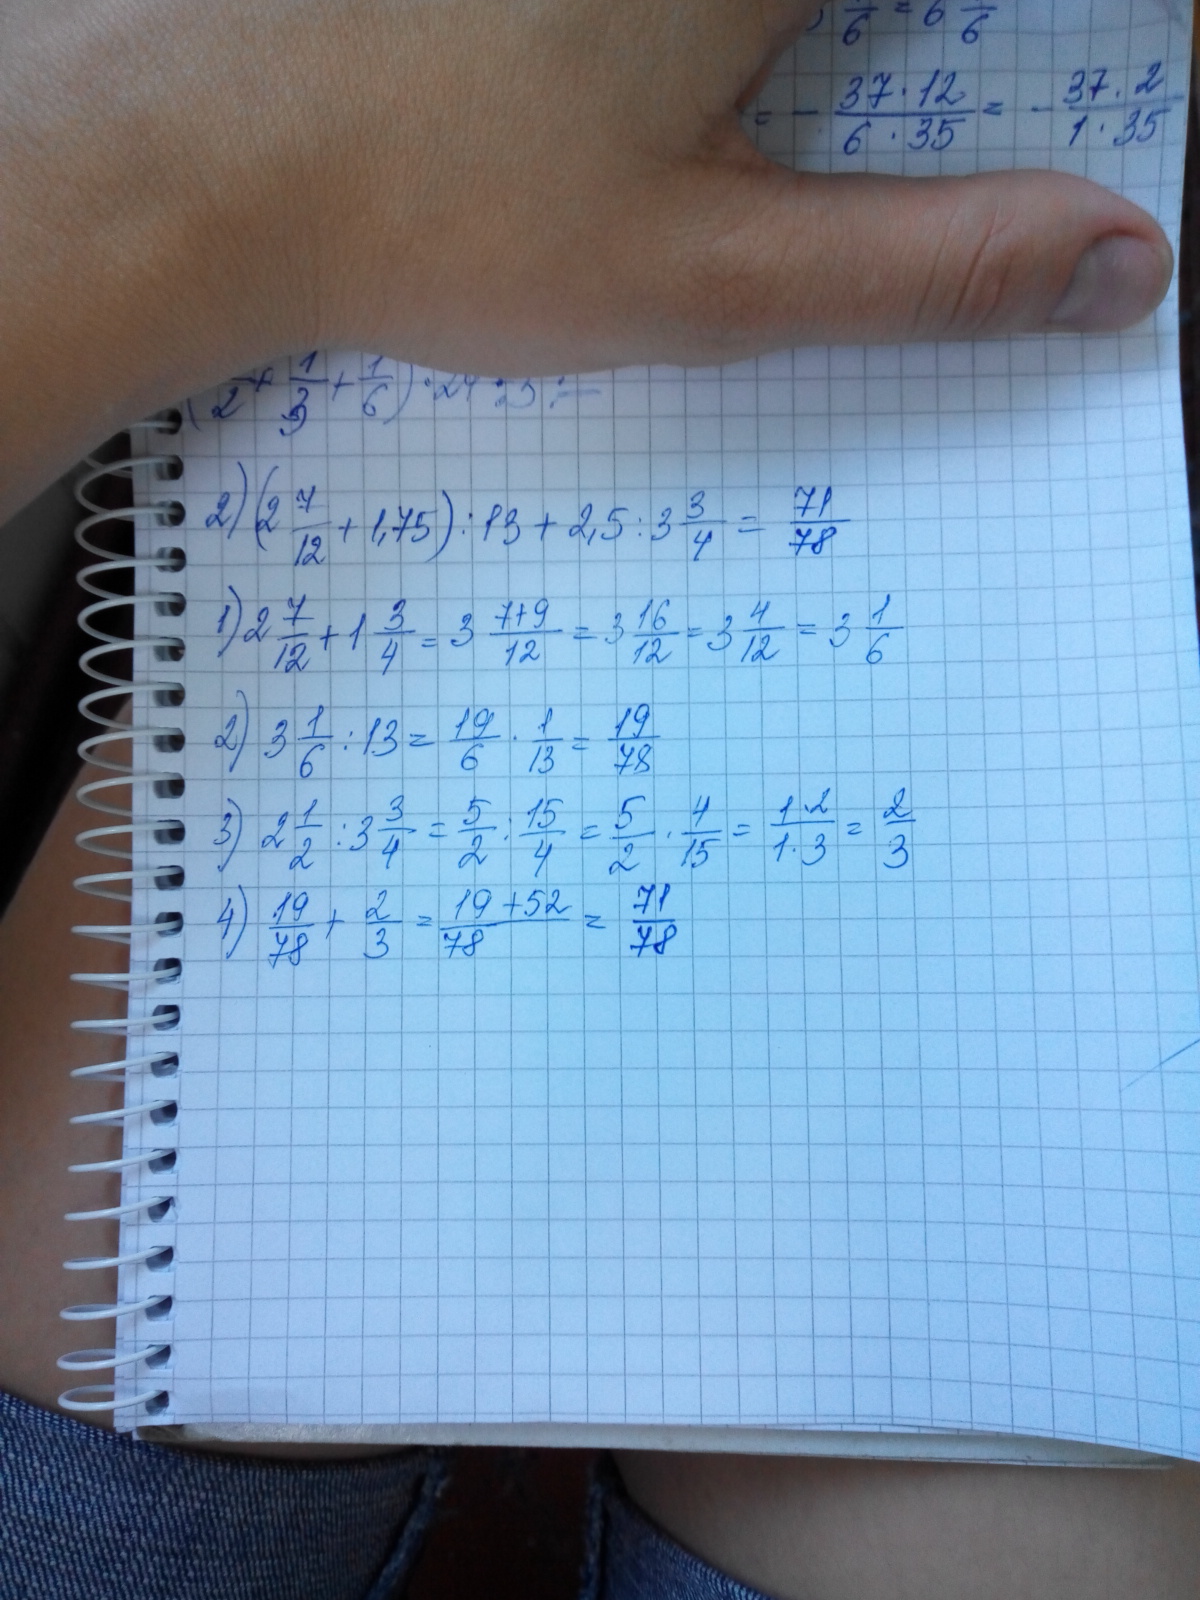 6 = 6 6
= - 37·12/6·35 = - 37·2/1·35
( /2 + 1/3 + 1/6) : 24 : 3 : -
2) (2 7/12 + 1,75) : 13 + 2,5 : 3 3/4 = 71/78
1) 2 7/12 + 1 3/4 = 3 7+9/12 = 3 16/12 = 3 4/12 = 3 1/6
2) 3 1/6 : 13 = 19/6 · 1/13 = 19/78
3) 2 1/2 : 3 3/4 = 5/2 : 15/4 = 5/2 · 4/15 = 1·2/1·3 = 2/3
4) 19/78 + 2/3 = 19+52/78 = 71/78